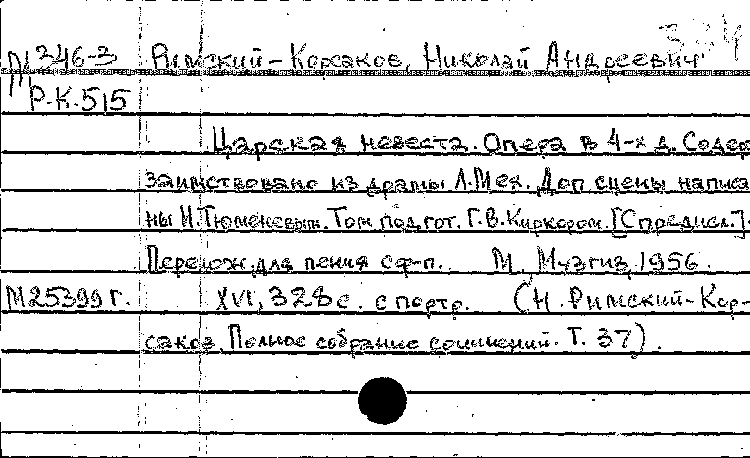 334
М346-3 Римский-Корсаков, Николай Андреевич
Р-К.515
Царская невеста. Опера в 4-х д. Содер
заимствовано из драмы Л.Мея. Доп сцены написа
ны И.Тюменевым. Том подгот. Г.В.Киркором. [С предисл.].
Перелож. для пения с ф-п. М., Музгиз, 1956.
М25399г. XVI, 328 с. с портр. (Н. Римский-Кор-
саков. Полное собрание сочинений. Т. 37).